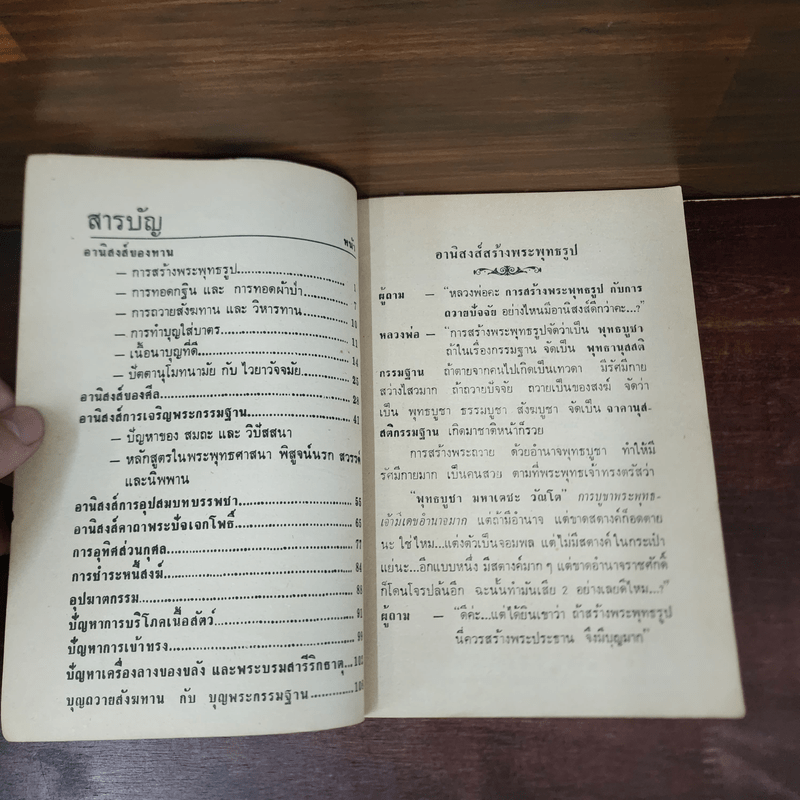 สารบัญ
หน้า
อานิสงส์ของทาน
— การสร้างพระพุทธรูป
— การทอดกฐิน และ การทอดผ้าป่า 7
— การถวายสังฆทาน และ วิหารทาน 10
— การทำบุญใส่บาตร 11
— เนื้อนาบุญที่ดี 14
— ปัตตานุโมทนามัย กับ ไวยาวัจจมัย 25
อานิสงส์ของศีล 28
อานิสงส์การเจริญพระกรรมฐาน 41
— ปัญหาของ สมถะ และ วิปัสสนา
— หลักสูตรในพระพุทธศาสนา พิสูจน์นรก สวรรค์
และนิพพาน
อานิสงส์การอุปสมบทบรรพชา
อานิสงส์คาถาพระปัจเจกโพธิ์
การอุทิศส่วนกุศล 77
การชำระหนี้สงฆ์
อุปมาตกรรม
ปัญหาการบริโภคเนื้อสัตว์ 91
ปัญหาการเข้าทรง
ปัญหาเครื่องลางของขลัง และพระบรมสารีริกธาตุ
บุญถวายสังฆทาน กับ บุญพระกรรมฐาน
อานิสงส์สร้างพระพุทธรูป
ผู้ถาม — "หลวงพ่อคะ การสร้างพระพุทธรูป กับการ
ถวายปัจจัย อย่างไหนมีอานิสงส์ดีกว่าคะ...?"
หลวงพ่อ — "การสร้างพระพุทธรูปจัดว่าเป็น พุทธบูชา
ถ้าในเรื่องกรรมฐาน จัดเป็น พุทธานุสสติ
กรรมฐาน ถ้าตายจากคนไปเกิดเป็นเทวดา มีรัศมีกาย
สว่างไสวมาก ถ้าถวายปัจจัย ถวายเป็นของสงฆ์ จัดว่า
เป็น พุทธบูชา ธรรมบูชา สังฆบูชา จัดเป็น จาคานุส-
สติกรรมฐาน เกิดมาชาติหน้าก็รวย
การสร้างพระถวาย ด้วยอำนาจพุทธบูชา ทำให้มี
รัศมีกายมาก เป็นคนสวย ตามที่พระพุทธเจ้าทรงตรัสว่า
"พุทธบูชา มหาเตชะ วัณโต" การบูชาพระพุทธ-
เจ้ามีเดชอำนาจมาก แต่ถ้ามีอำนาจ แต่ขาดสตางค์ก็อดตาย
นะ ใช่ไหม...แต่งตัวเป็นจอมพล แต่ไม่มีสตางค์ในกระเป๋า
แย่นะ...อีกแบบหนึ่ง มีสตางค์มาก ๆ แต่ขาดอำนาจราชศักดิ์
ก็โดนโจรปล้นอีก ฉะนั้นทำมันเสีย 2 อย่างเลยดีไหม...?"
ผู้ถาม — "ดีค่ะ...แต่ได้ยินเขาว่า ถ้าสร้างพระพุทธรูป
นี่ควรสร้างพระประธาน จึงมีบุญมาก"